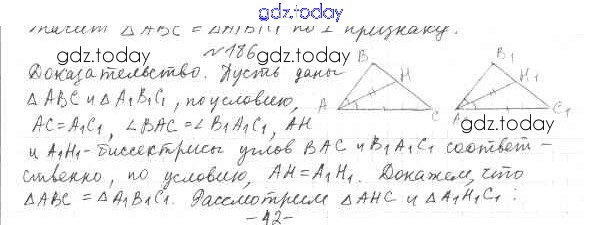 gdz.today
значит △ABC = △A₁B₁C₁ по 1 признаку.
gdz.today
№186
B
B₁
Доказательство. Пусть даны
H
H₁
△ABC и △A₁B₁C₁, по условию,
A
C
A₁
C₁
AC=A₁C₁, ∠BAC=∠B₁A₁C₁, AH
gdz.today
и A₁H₁-биссектрисы углов BAC и B₁A₁C₁ соответ-
ственно, по условию, AH=A₁H₁. Докажем, что
△ABC = △A₁B₁C₁. Рассмотрим △AHC и △A₁H₁C₁:
-42-
gdz.today